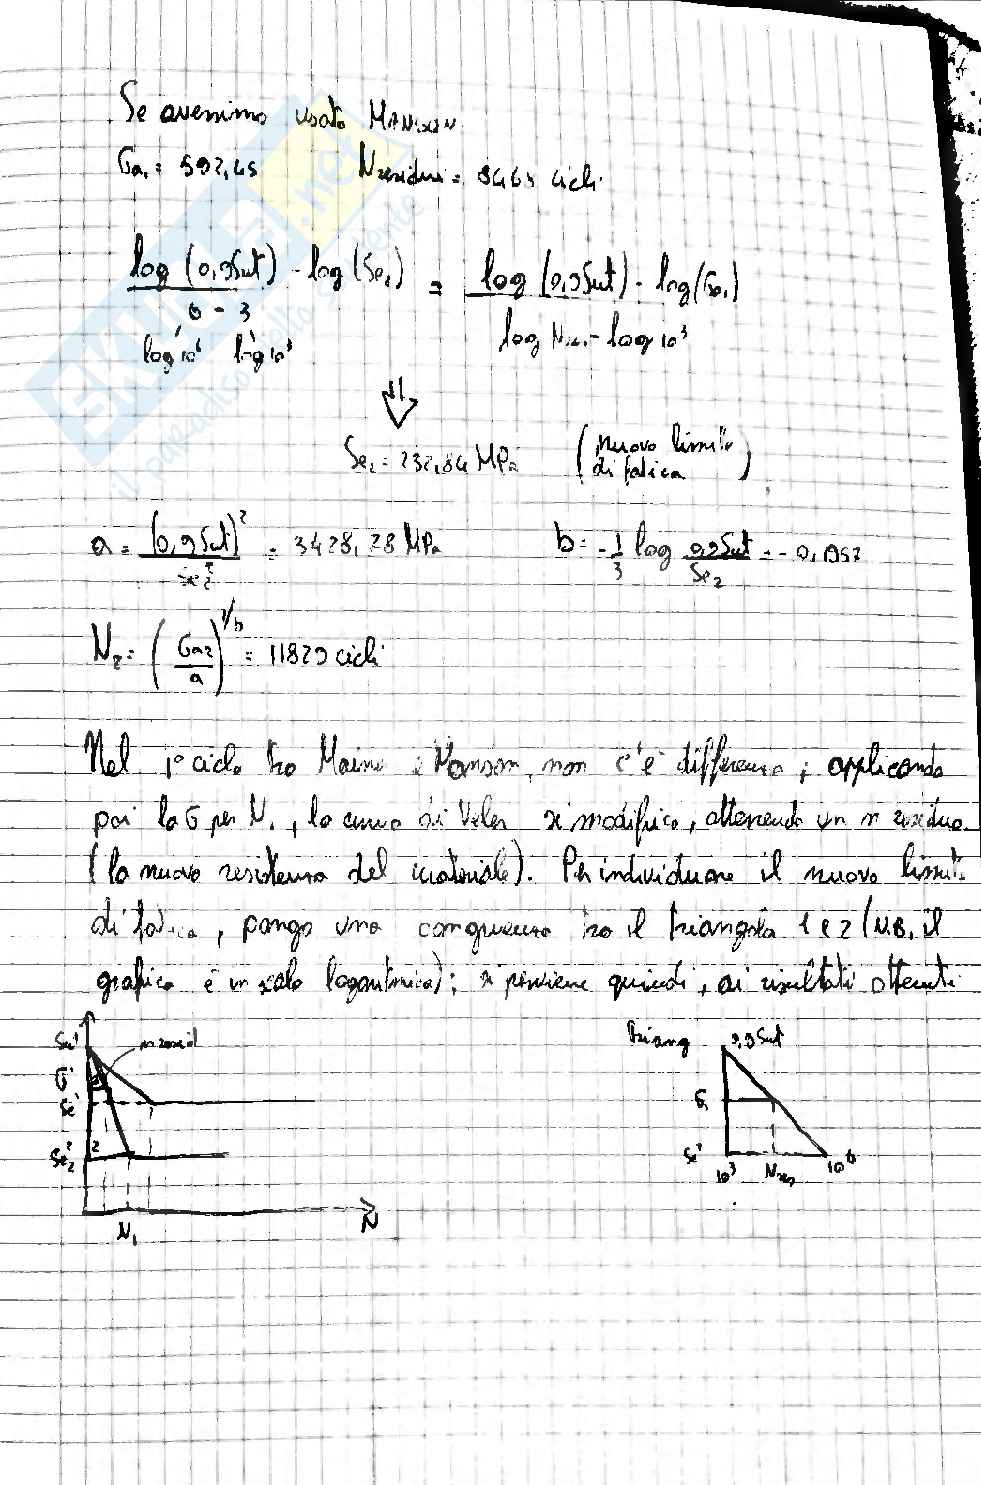 Se avessimo usato MANSON
σa₁ = 592,45 Nresidui = 8465 cicli
log (0,9Sut) - log (Se₂) / 6 - 3 = log (0,9Sut) - log(σa₁) / log Nres - log 10³
log 10⁶ log 10³
⇓
Se₂ = 232,84 MPa (nuovo limite
di fatica)
a = (0,9 Sut)² / Se₂ = 3428,28 MPa b = -1/3 log 0,9Sut / Se₂ =
N₂ = (σa₂ / a)^1/b = 11829 cicli
Nel 1° ciclo tra Maine e Manson, non c'è differenza; applicando
poi la σ per N₁, la curva di Veler si modifica, ottenendo un n residuo
(la nuova resistenza del materiale). Per individuare il nuovo limite
di fatica, pongo una congruenza tra il triangolo 1 e 2 (N.B. il
grafico è in scala logaritmica); si perviene quindi, ai risultati ottenuti
Triang 0,9Sut
n resid
σ
Se
Se₂
2
N₁
N
σ₁
Se²
10³
Nres
10⁶